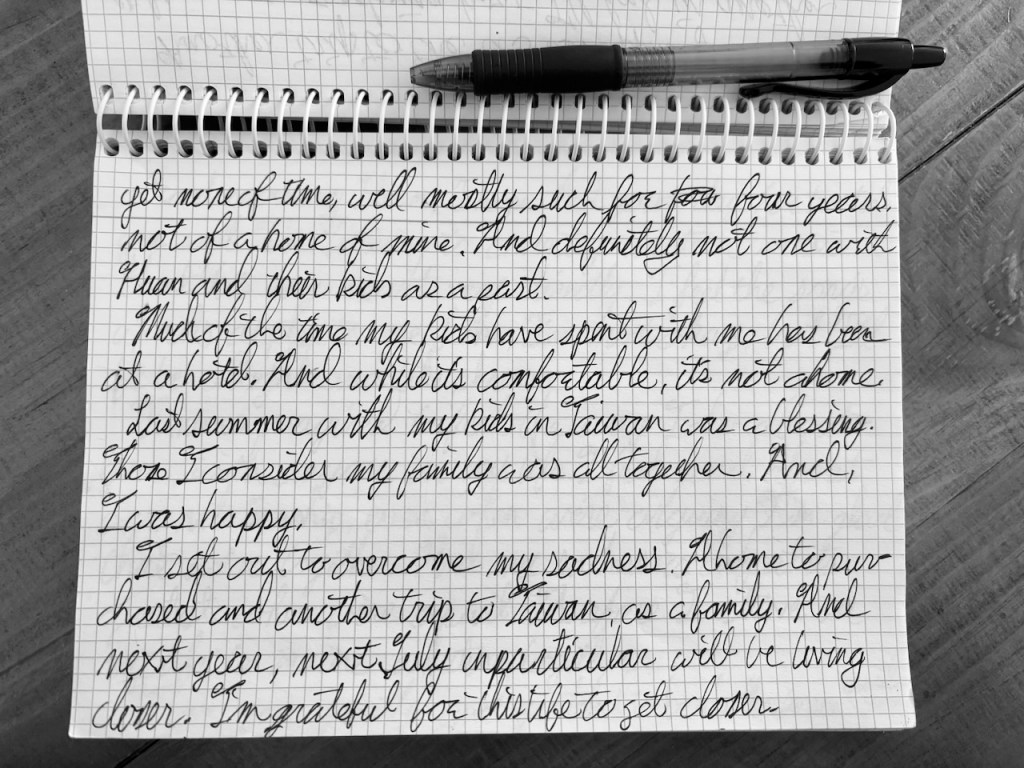 yet none of time, well mostly such for four years.
not of a home of mine. And definitely not one with
Huan and their kids as a part.
Much of the time my kids have spent with me has been
at a hotel. And while its comfortable, its not a home.
Last summer with my kids in Taiwan was a blessing.
Those I consider my family was all together. And,
I was happy.
I set out to overcome my sadness. A home to pur-
chased and another trip to Taiwan, as a family. And
next year, next July in particular will be living
closer. I'm grateful for this life to get closer.